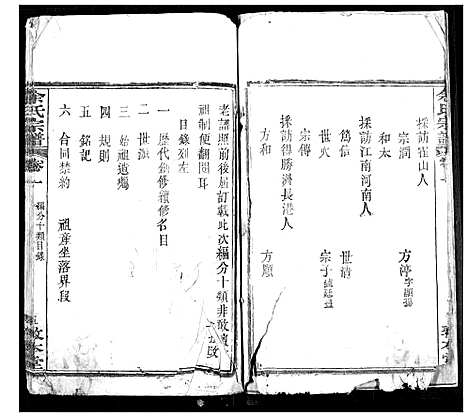 余氏宗譜 卷一
採訪崔山人
宗潤 方渟
和太
採訪江南河南人
篤信 世清
宗傳 宗子
採訪得勝洲長港人
方和 方願
敦本堂
老譜照前後屆訂載此次編分十類非敢
祖制便翻閱耳
目錄列左
一 歷代創修續修名目
二 世派
三 始祖遺像
四 規則
五 銘記
六 合同禁約 祖產坐落界段
余氏宗譜 卷一 編分十類目錄 敦本堂